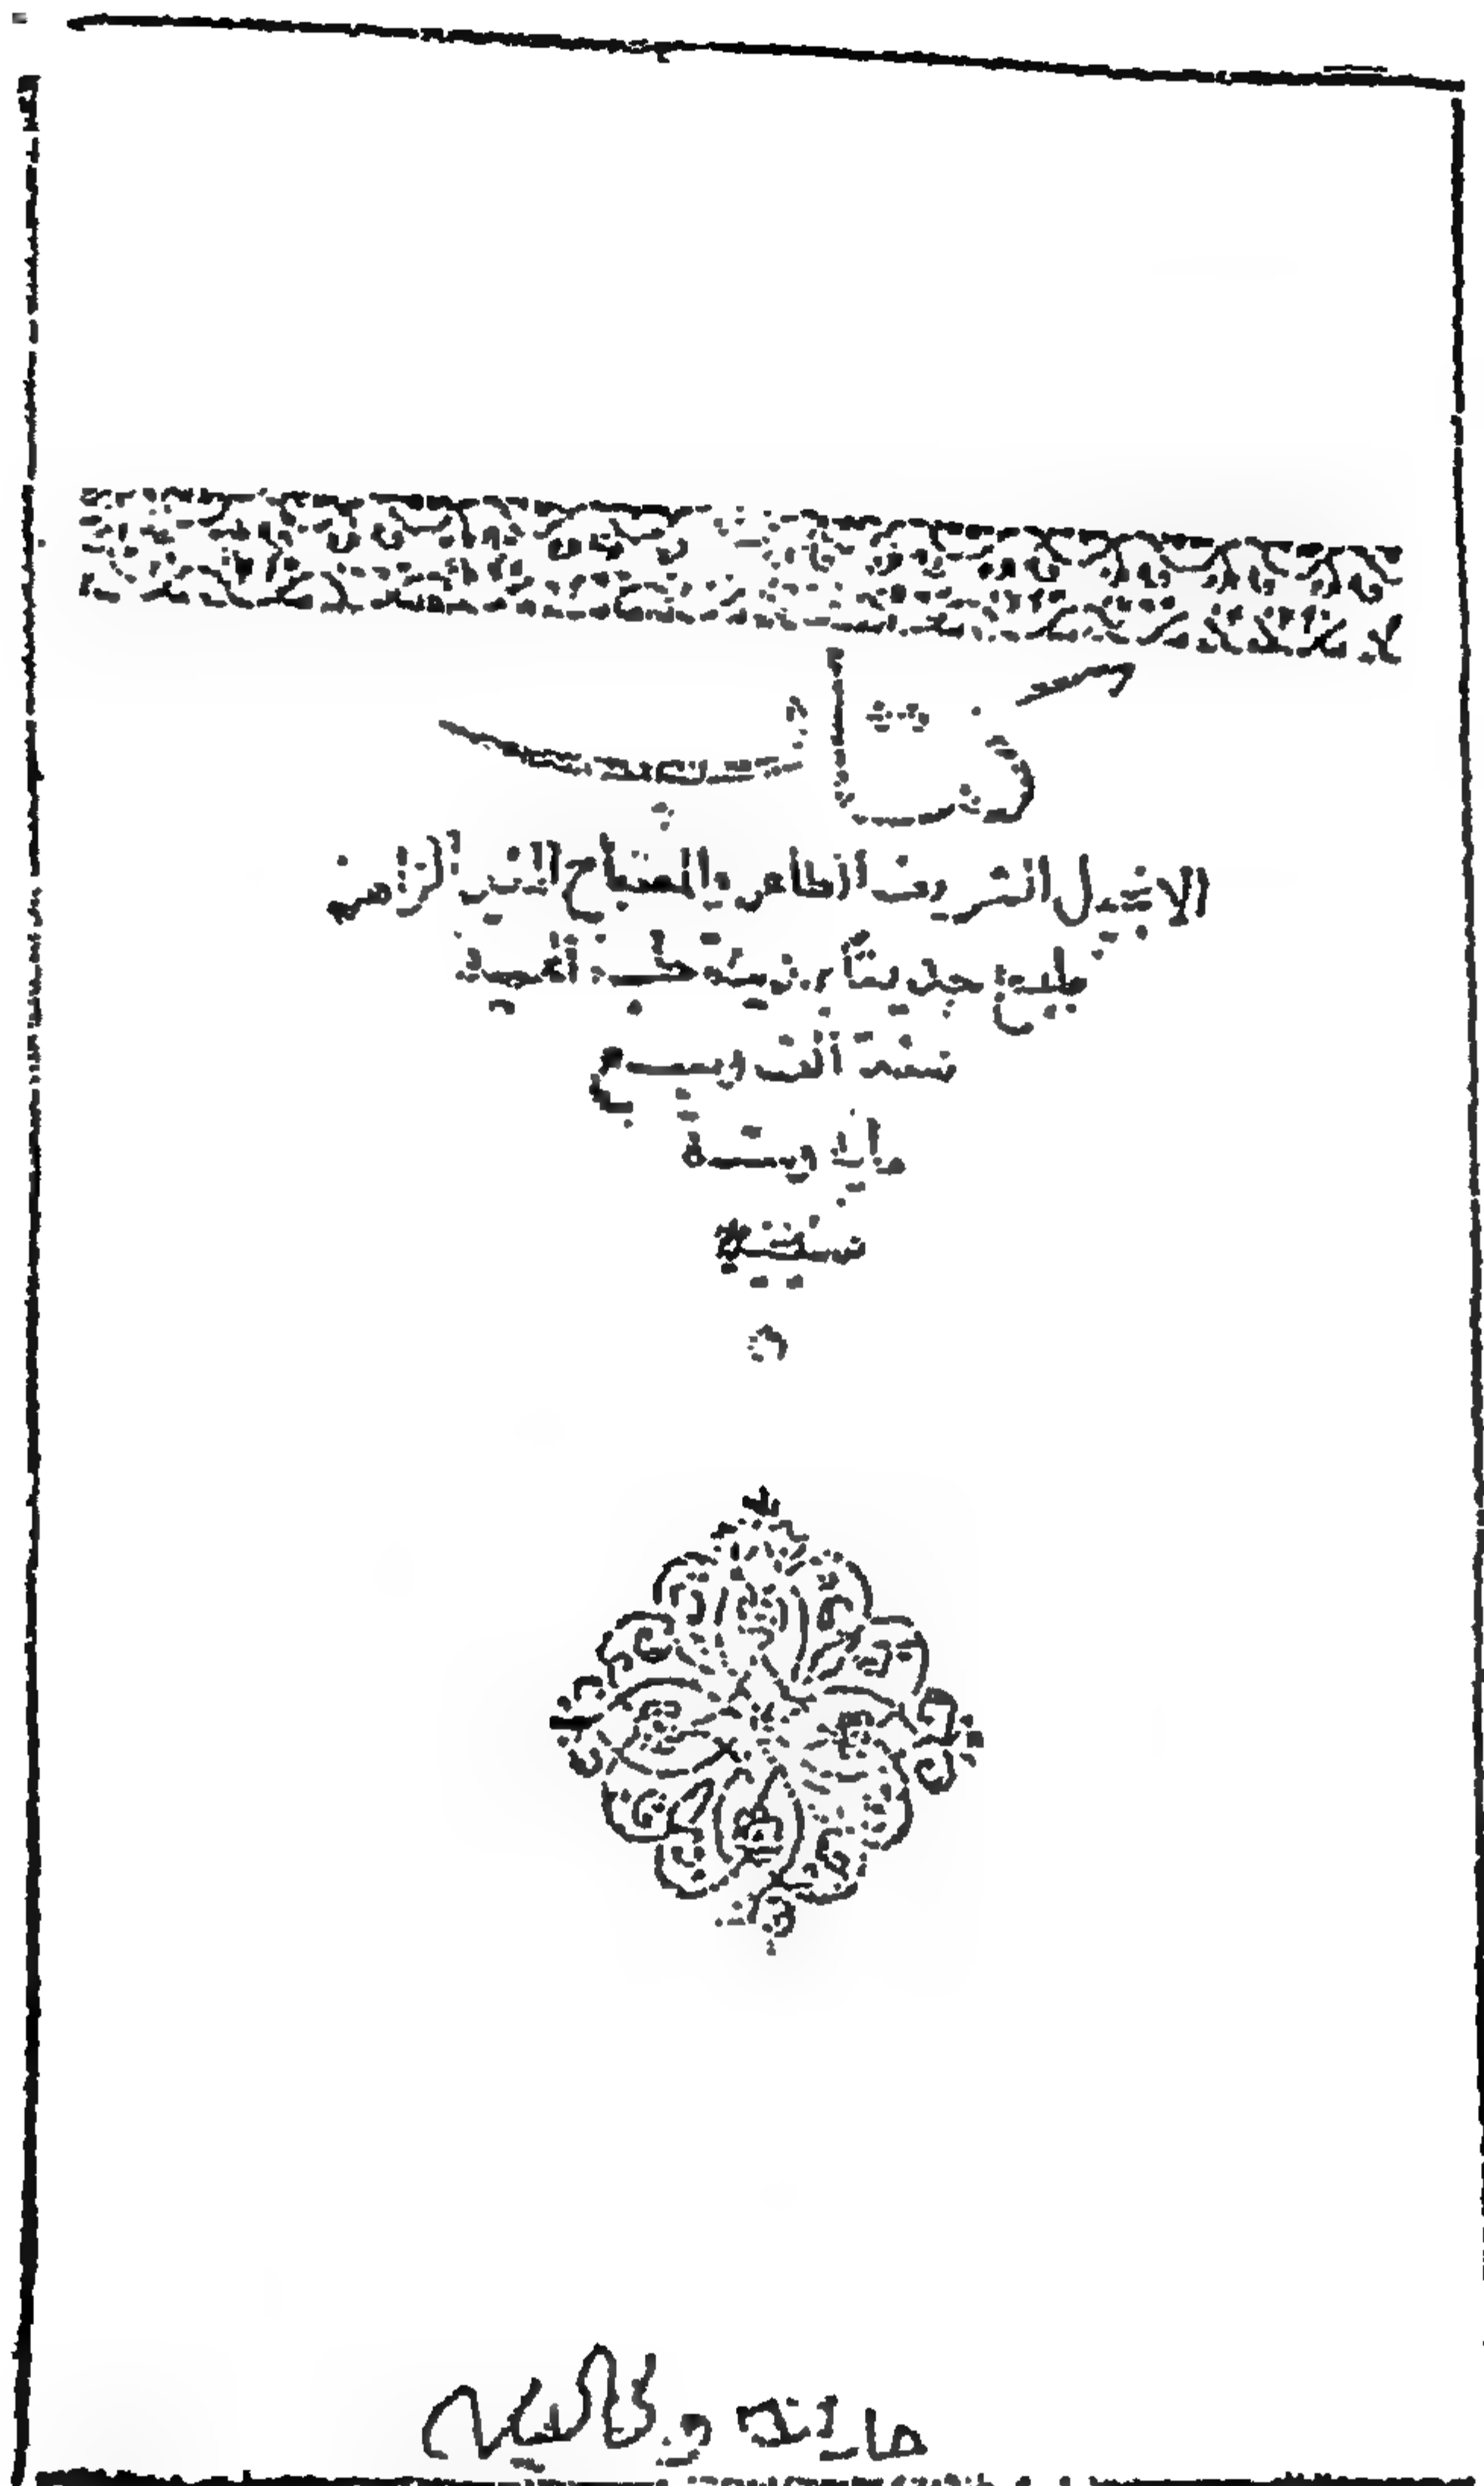 كتاب
الانجيل الشريف الطاهر والمصباح المنير الزاهر
طبع حديثاً بمدينة حلب المحمية
سنة الف وسبع
ماية وستة
مسيحية